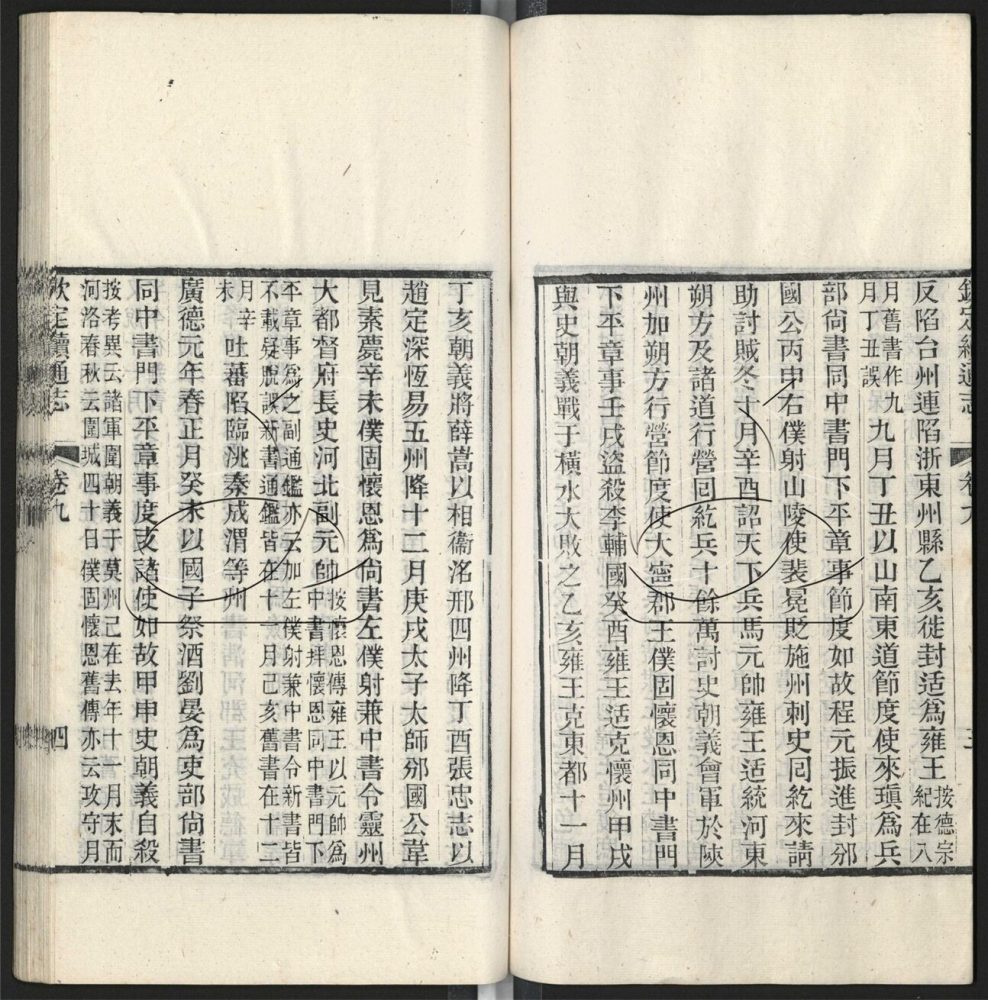 欽定續通志 卷九 三
反陷台州連陷浙東州縣乙亥徙封适爲雍王按德宗紀在八
月舊書作九月丁丑誤九月丁丑以山南東道節度使來瑱爲兵
部尚書同中書門下平章事節度如故程元振進封邠
國公丙申右僕射山陵使裴冕貶施州刺史囘紇來請
助討賊冬十月辛酉詔天下兵馬元帥雍王适統河東
朔方及諸道行營囘紇兵十餘萬討史朝義會軍於陝
州加朔方行營節度使大寧郡王僕固懷恩同中書門
下平章事壬戌盜殺李輔國癸酉雍王适克懷州甲戌
與史朝義戰于橫水大敗之乙亥雍王克東都十一月
丁亥朝義將薛嵩以相衞洺邢四州降丁酉張忠志以
趙定深恆易五州降十二月庚戌太子太師邠國公韋
見素薨辛未僕固懷恩爲尚書左僕射兼中書令靈州
大都督府長史河北副元帥按懷恩傳雍王以元帥爲中書拜懷恩同中書門下
平章事爲之副通鑑亦云加左僕射兼中書令新書皆不載疑脫誤新書通鑑皆在十一月己亥舊書在十二
月辛未吐蕃陷臨洮秦成渭等州
廣德元年春正月癸未以國子祭酒劉晏爲吏部尚書
同中書門下平章事度支諸使如故甲申史朝義自殺
按考異云諸軍圍朝義于莫州已在去年十一月末而河洛春秋云圍城四十日僕固懷恩舊傳亦云攻守月
欽定續通志 卷九 四